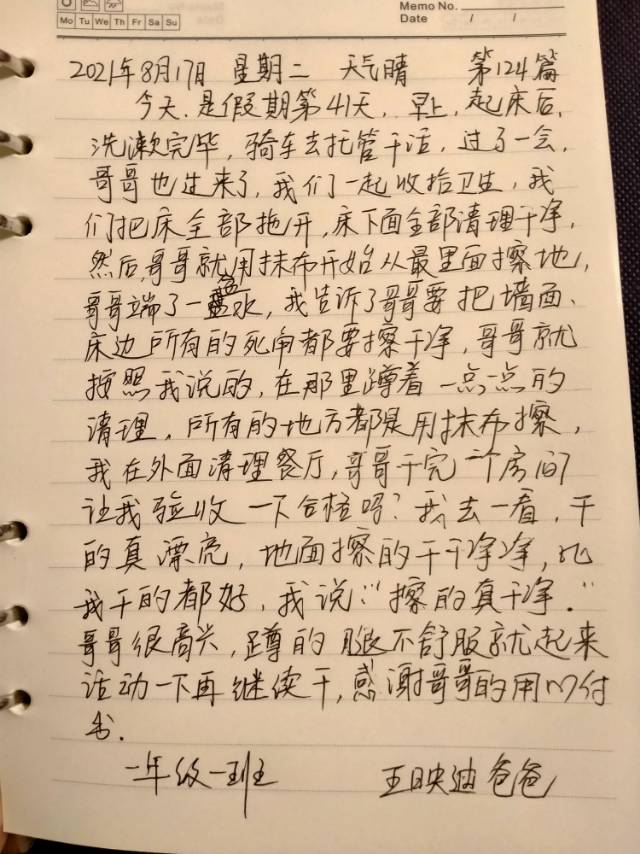 Memo No.
Mo Tu We Th Fr Sa Su
Date / /
2021年8月17日 星期二 天气晴 第124篇
今天是假期第41天，早上，起床后，
洗漱完毕，骑车去托管干活，过了一会，
哥哥也过来了，我们一起收拾卫生，我
们把床全部拖开，床下面全部清理干净，
然后，哥哥就用抹布开始从最里面擦地，
哥哥端了一盆水，我告诉了哥哥要把墙面、
床边所有的死角都要擦干净，哥哥就
按照我说的，在那里蹲着一点一点的
清理，所有的地方都是用抹布擦，
我在外面清理餐厅，哥哥干完一个房间
让我验收一下合格吗？我去一看，干
的真漂亮，地面擦的干干净净，比
我干的都好，我说：“擦的真干净．”
哥哥很高兴，蹲的腿不舒服就起来
活动一下再继续干，感谢哥哥的用心付
出．
一年级一班 王映迪爸爸